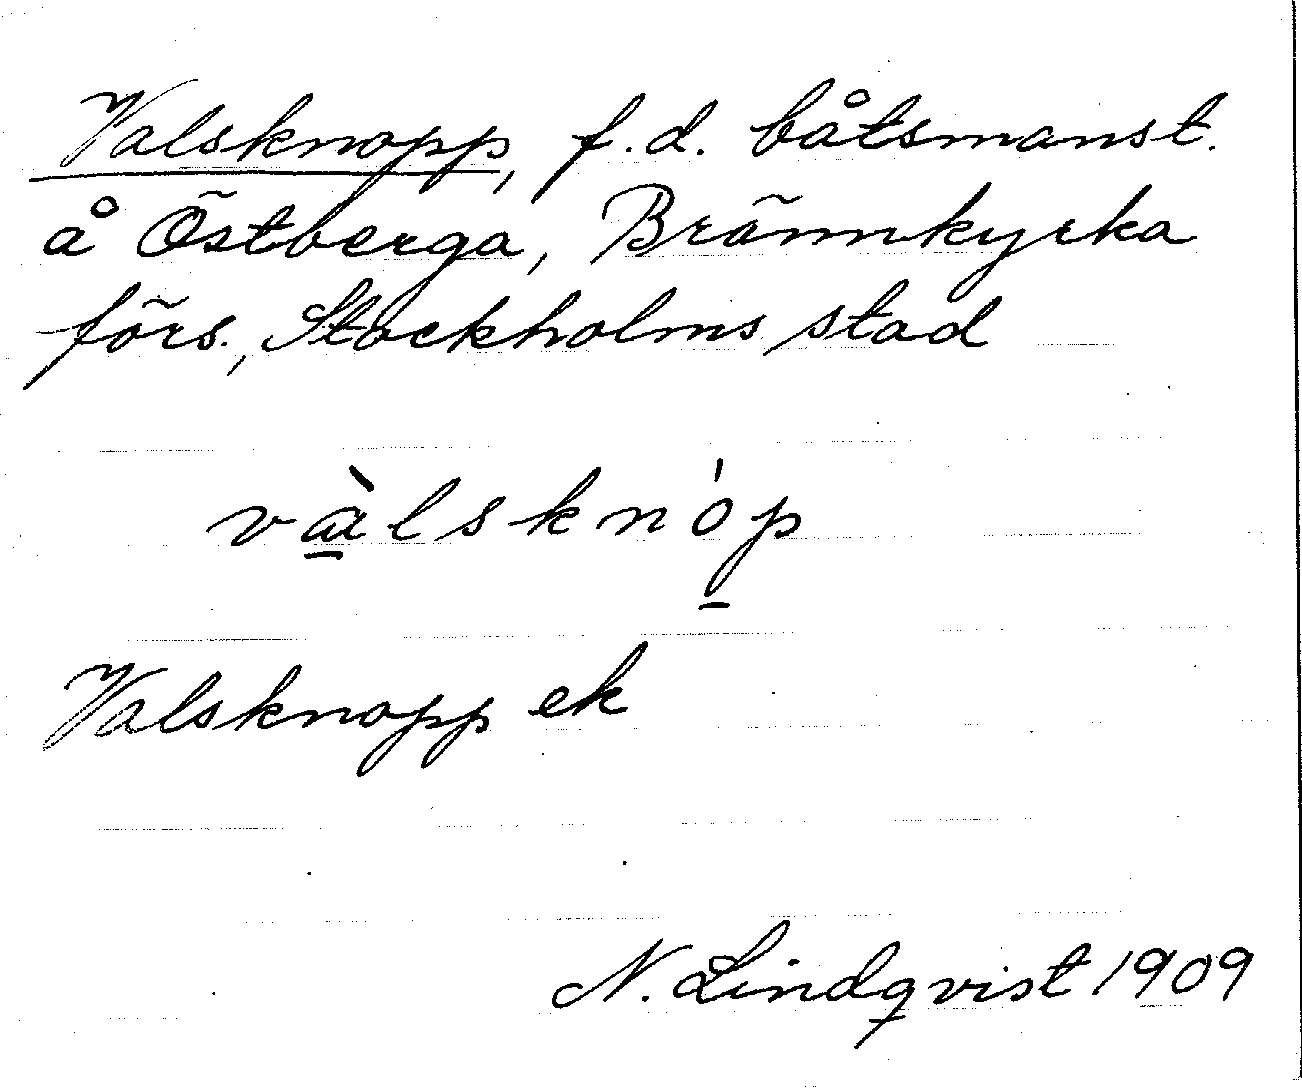 Valsknopp, f.d. båtsmanst.
å Östberga, Brännkyrka
förs., Stockholms stad
vàlsknóp
Valsknopp ek
N. Lindqvist 1909